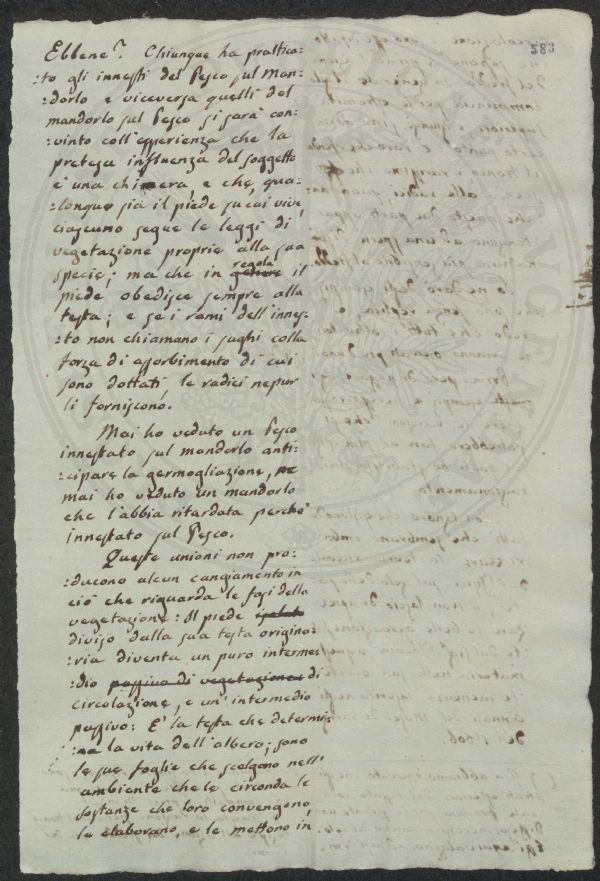 583
Ebbene? Chiunque ha prattica:
:to gli innesti del Pesco sul Man:
:dorlo e viceversa quelli del
mandorlo sul Pesco si sarà con:
:vinto coll'esperienza che la
pretesa influenza del soggetto
è una chimera, e che, qua:
:lonque sia il piede su cui vive,
ciascuno segue le leggi di
vegetazione proprie alla sua
specie; ma che in genere regola il
piede obedisce sempre alla
testa; e se i rami dell'innes:
:to non chiamano i sughi colla
forza di assorbimento di cui
sono dottati, le radici nepur
li forniscono.
Mai ho veduto un Pesco
innestato sul mandorlo anti:
:cipare la germogliazione, ne
mai ho veduto un mandorlo
che l'abbia ritardata perchè
innestato sul Pesco.
Queste unioni non pro:
:ducono alcun cangiamento in
ciò che riguarda le fasi della
vegetazione: Il piede
diviso dalla sua testa origina:
:ria diventa un puro interme:
:dio passivo di vegetazione di
circolazione, e un intermedio
passivo: È la testa che determi:
:na la vita dell'albero; sono
le sue foglie che scelgono nell'
ambiente che le circonda le
sostanze che loro convengono,
le elaborano, e le mettono in